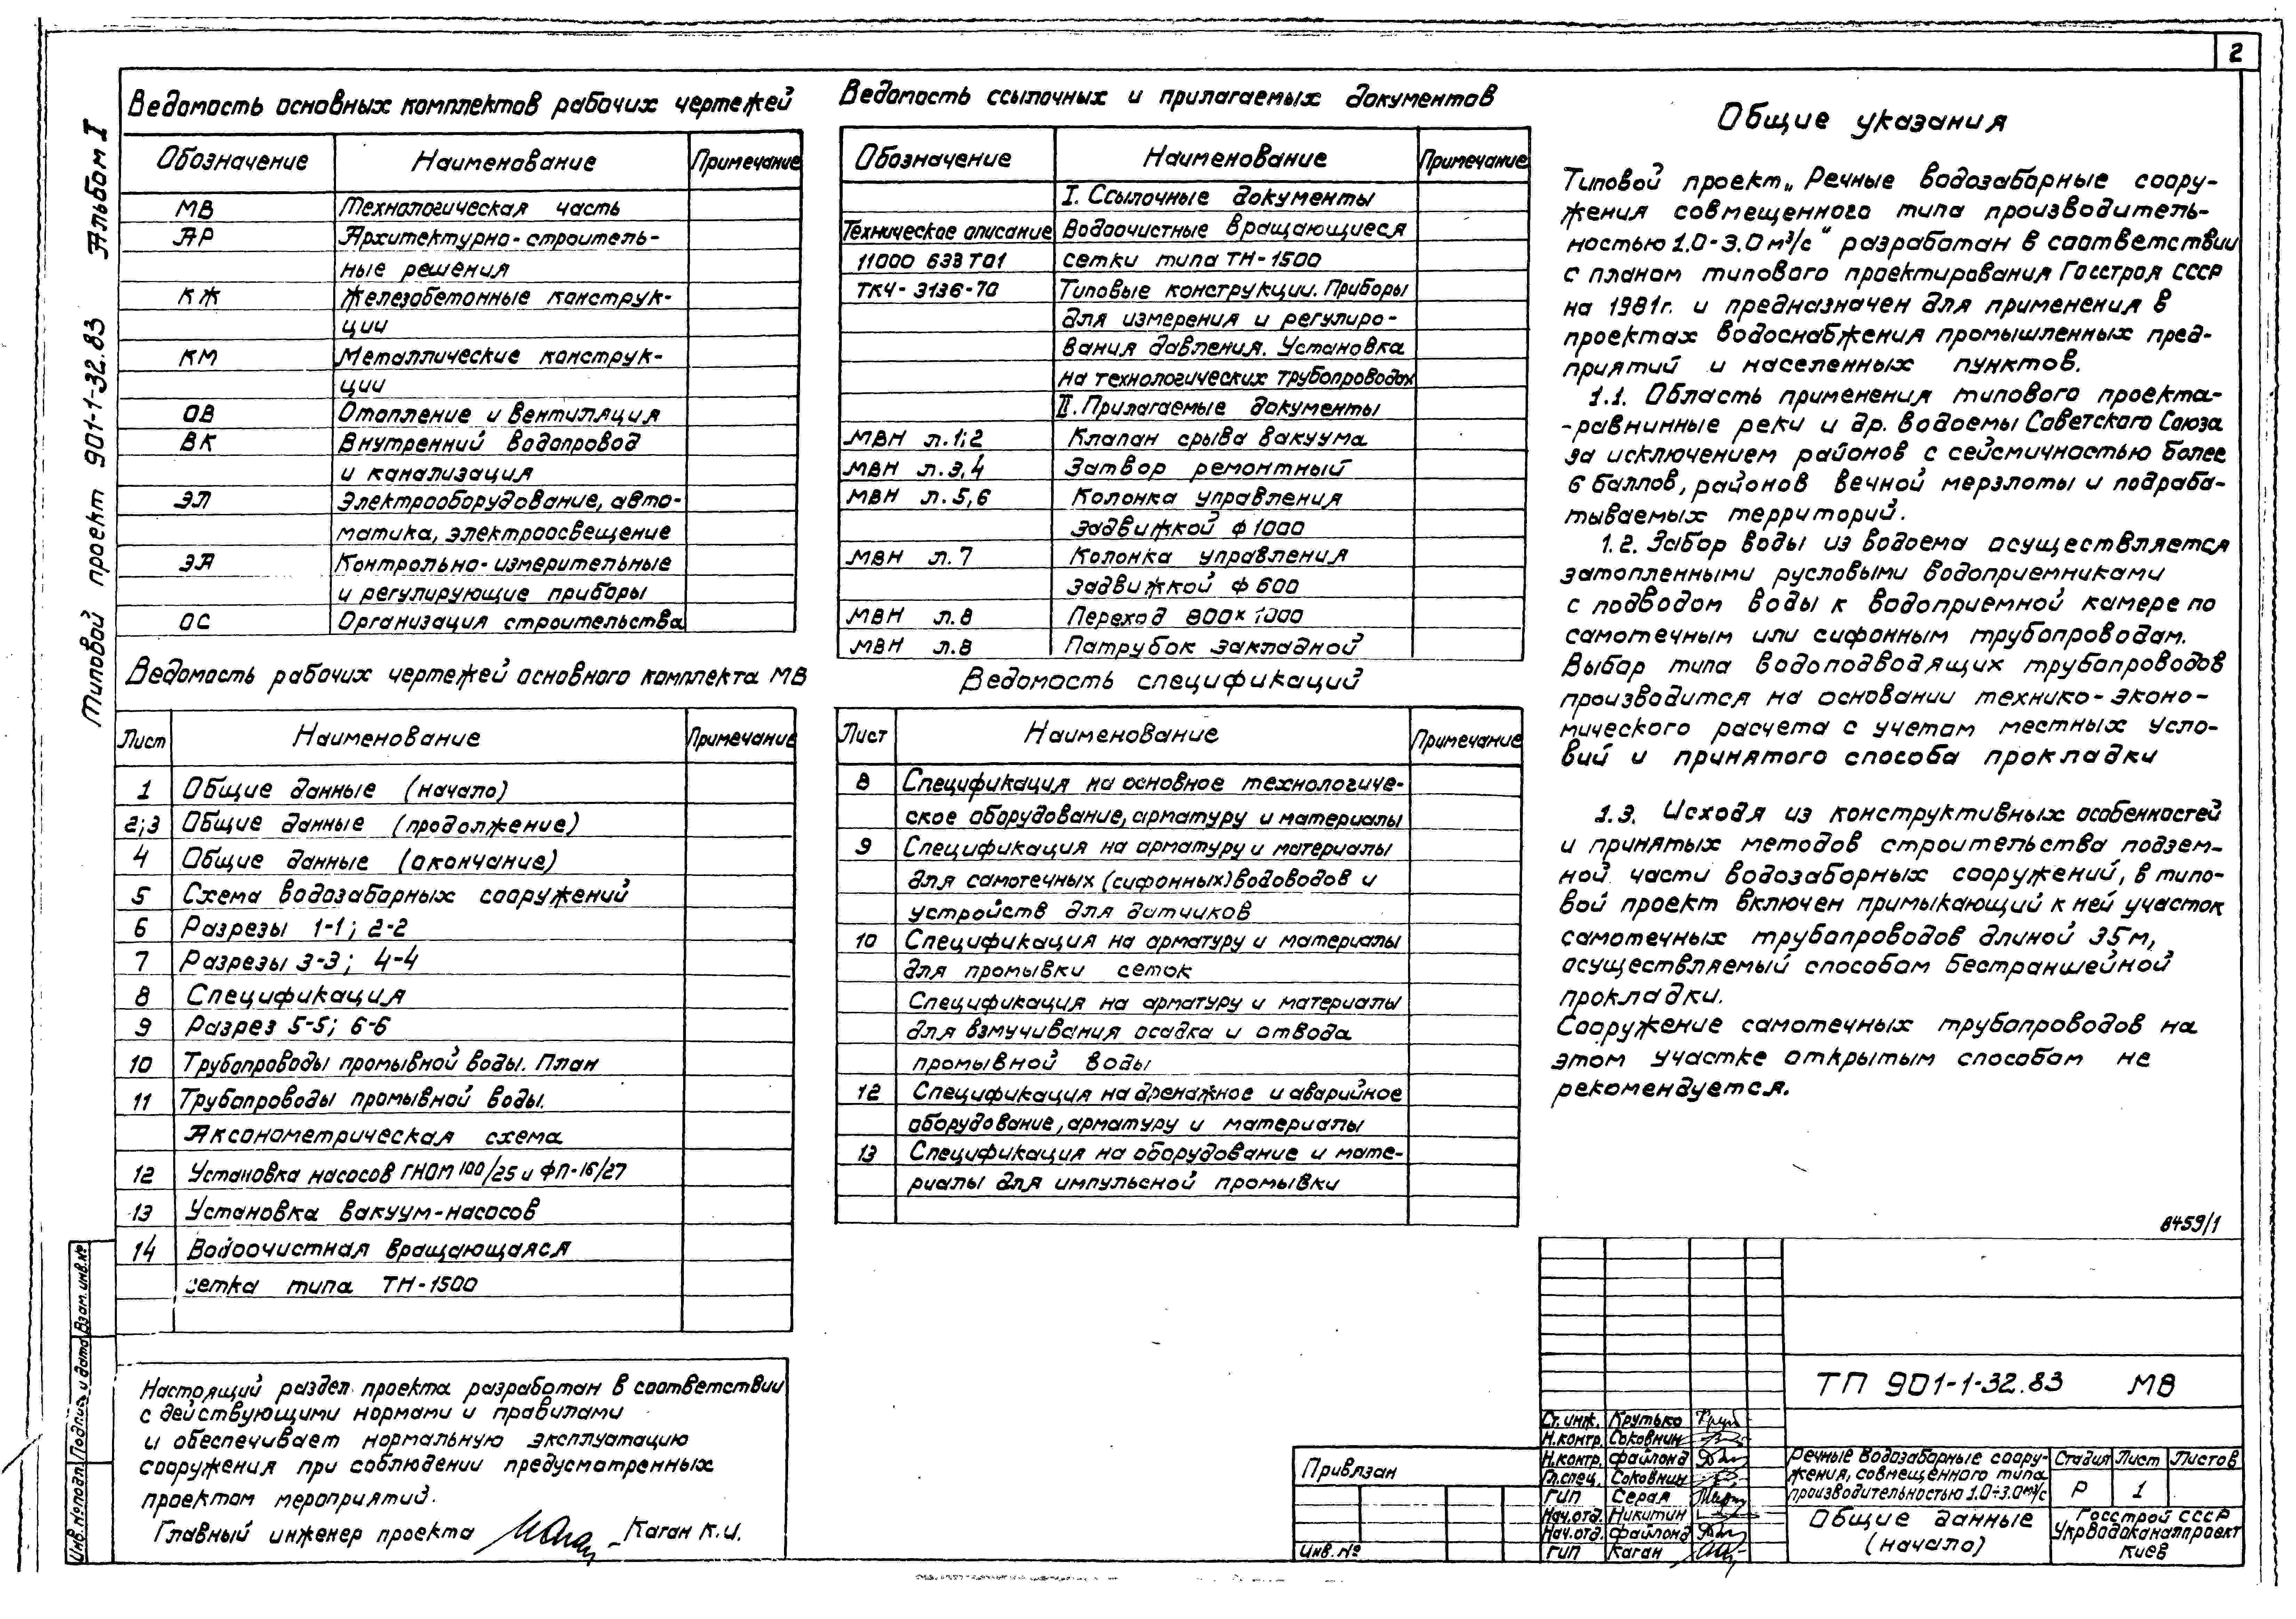 2
Альбом I
Типовой проект 901-1-32.83
Ведомость основных комплектов рабочих чертежей
Обозначение Наименование Примечание
МВ Технологическая часть
АР Архитектурно-строитель-
ные решения
КЖ Железобетонные конструк-
ции
КМ Металлические конструк-
ции
ОВ Отопление и вентиляция
ВК Внутренний водопровод
и канализация
ЭЛ Электрооборудование, авто-
матика, электроосвещение
ЭА Контрольно-измерительные
и регулирующие приборы
ОС Организация строительства
Ведомость рабочих чертежей основного комплекта МВ
Лист Наименование Примечание
1 Общие данные (начало)
2;3 Общие данные (продолжение)
4 Общие данные (окончание)
5 Схема водозаборных сооружений
6 Разрезы 1-1; 2-2
7 Разрезы 3-3; 4-4
8 Спецификация
9 Разрез 5-5; 6-6
10 Трубопроводы промывной воды. План
11 Трубопроводы промывной воды.
Аксонометрическая схема
12 Установка насосов ГНОМ 100/25 и ФП-16/27
13 Установка вакуум-насосов
14 Водоочистная вращающаяся
сетка типа ТН-1500
Настоящий раздел проекта разработан в соответствии
с действующими нормами и правилами
и обеспечивает нормальную эксплуатацию
сооружения при соблюдении предусмотренных
проектом мероприятий.
Главный инженер проекта Каган К.И.
Ведомость ссылочных и прилагаемых документов
Обозначение Наименование Примечание
I. Ссылочные документы
Техническое описание Водоочистные вращающиеся
11000 633 ТО1 сетки типа ТН-1500
ТК4-3136-70 Типовые конструкции. Приборы
для измерения и регулиро-
вания давления. Установка
на технологических трубопроводах
II. Прилагаемые документы
МВН л.1;2 Клапан срыва вакуума
МВН л.3,4 Затвор ремонтный
МВН л.5,6 Колонка управления
задвижкой ф 1000
МВН л.7 Колонка управления
задвижкой ф 600
МВН л.8 Переход 800×1000
МВН л.8 Патрубок закладной
Ведомость спецификаций
Лист Наименование Примечание
8 Спецификация на основное технологиче-
ское оборудование, арматуру и материалы
9 Спецификация на арматуру и материалы
для самотечных (сифонных) водоводов и
устройств для датчиков
10 Спецификация на арматуру и материалы
для промывки сеток
Спецификация на арматуру и материалы
для взмучивания осадка и отвода
промывной воды
12 Спецификация на дренажное и аварийное
оборудование, арматуру и материалы
13 Спецификация на оборудование и мате-
риалы для импульсной промывки
Общие указания
Типовой проект „Речные водозаборные соору-
жения совмещенного типа производитель-
ностью 1.0-3.0 м³/с" разработан в соответствии
с планом типового проектирования Госстроя СССР
на 1981г. и предназначен для применения в
проектах водоснабжения промышленных пред-
приятий и населенных пунктов.
1.1. Область применения типового проекта-
-равнинные реки и др. водоемы Советского Союза
за исключением районов с сейсмичностью более
6 баллов, районов вечной мерзлоты и подраба-
тываемых территорий.
1.2. Забор воды из водоема осуществляется
затопленными русловыми водоприемниками
с подводом воды к водоприемной камере по
самотечным или сифонным трубопроводам.
Выбор типа водоподводящих трубопроводов
производится на основании технико-эконо-
мического расчета с учетом местных усло-
вий и принятого способа прокладки
1.3. Исходя из конструктивных особенностей
и принятых методов строительства подзем-
ной части водозаборных сооружений, в типо-
вой проект включен примыкающий к ней участок
самотечных трубопроводов длиной 35м,
осуществляемый способом бестраншейной
прокладки.
Сооружение самотечных трубопроводов на
этом участке открытым способом не
рекомендуется.
8459/1
ТП 901-1-32.83 МВ
Ст. инж. Крутько
Н.контр. Соковнин
Н.контр. Файлонд
Гл.спец. Соковнин
ГИП Серая
Нач.отд. Никитин
Нач.отд. Файлонд
ГИП Каган
Речные водозаборные соору-
жения, совмещенного типа
производительностью 1.0÷3.0 м³/с
Стадия Лист Листов
Р 1
Общие данные
(начало)
Госстрой СССР
Укрводоканалпроект
Киев
Привязан
Инв. №
Инв.№подл. Подпись и дата Взам. инв.№